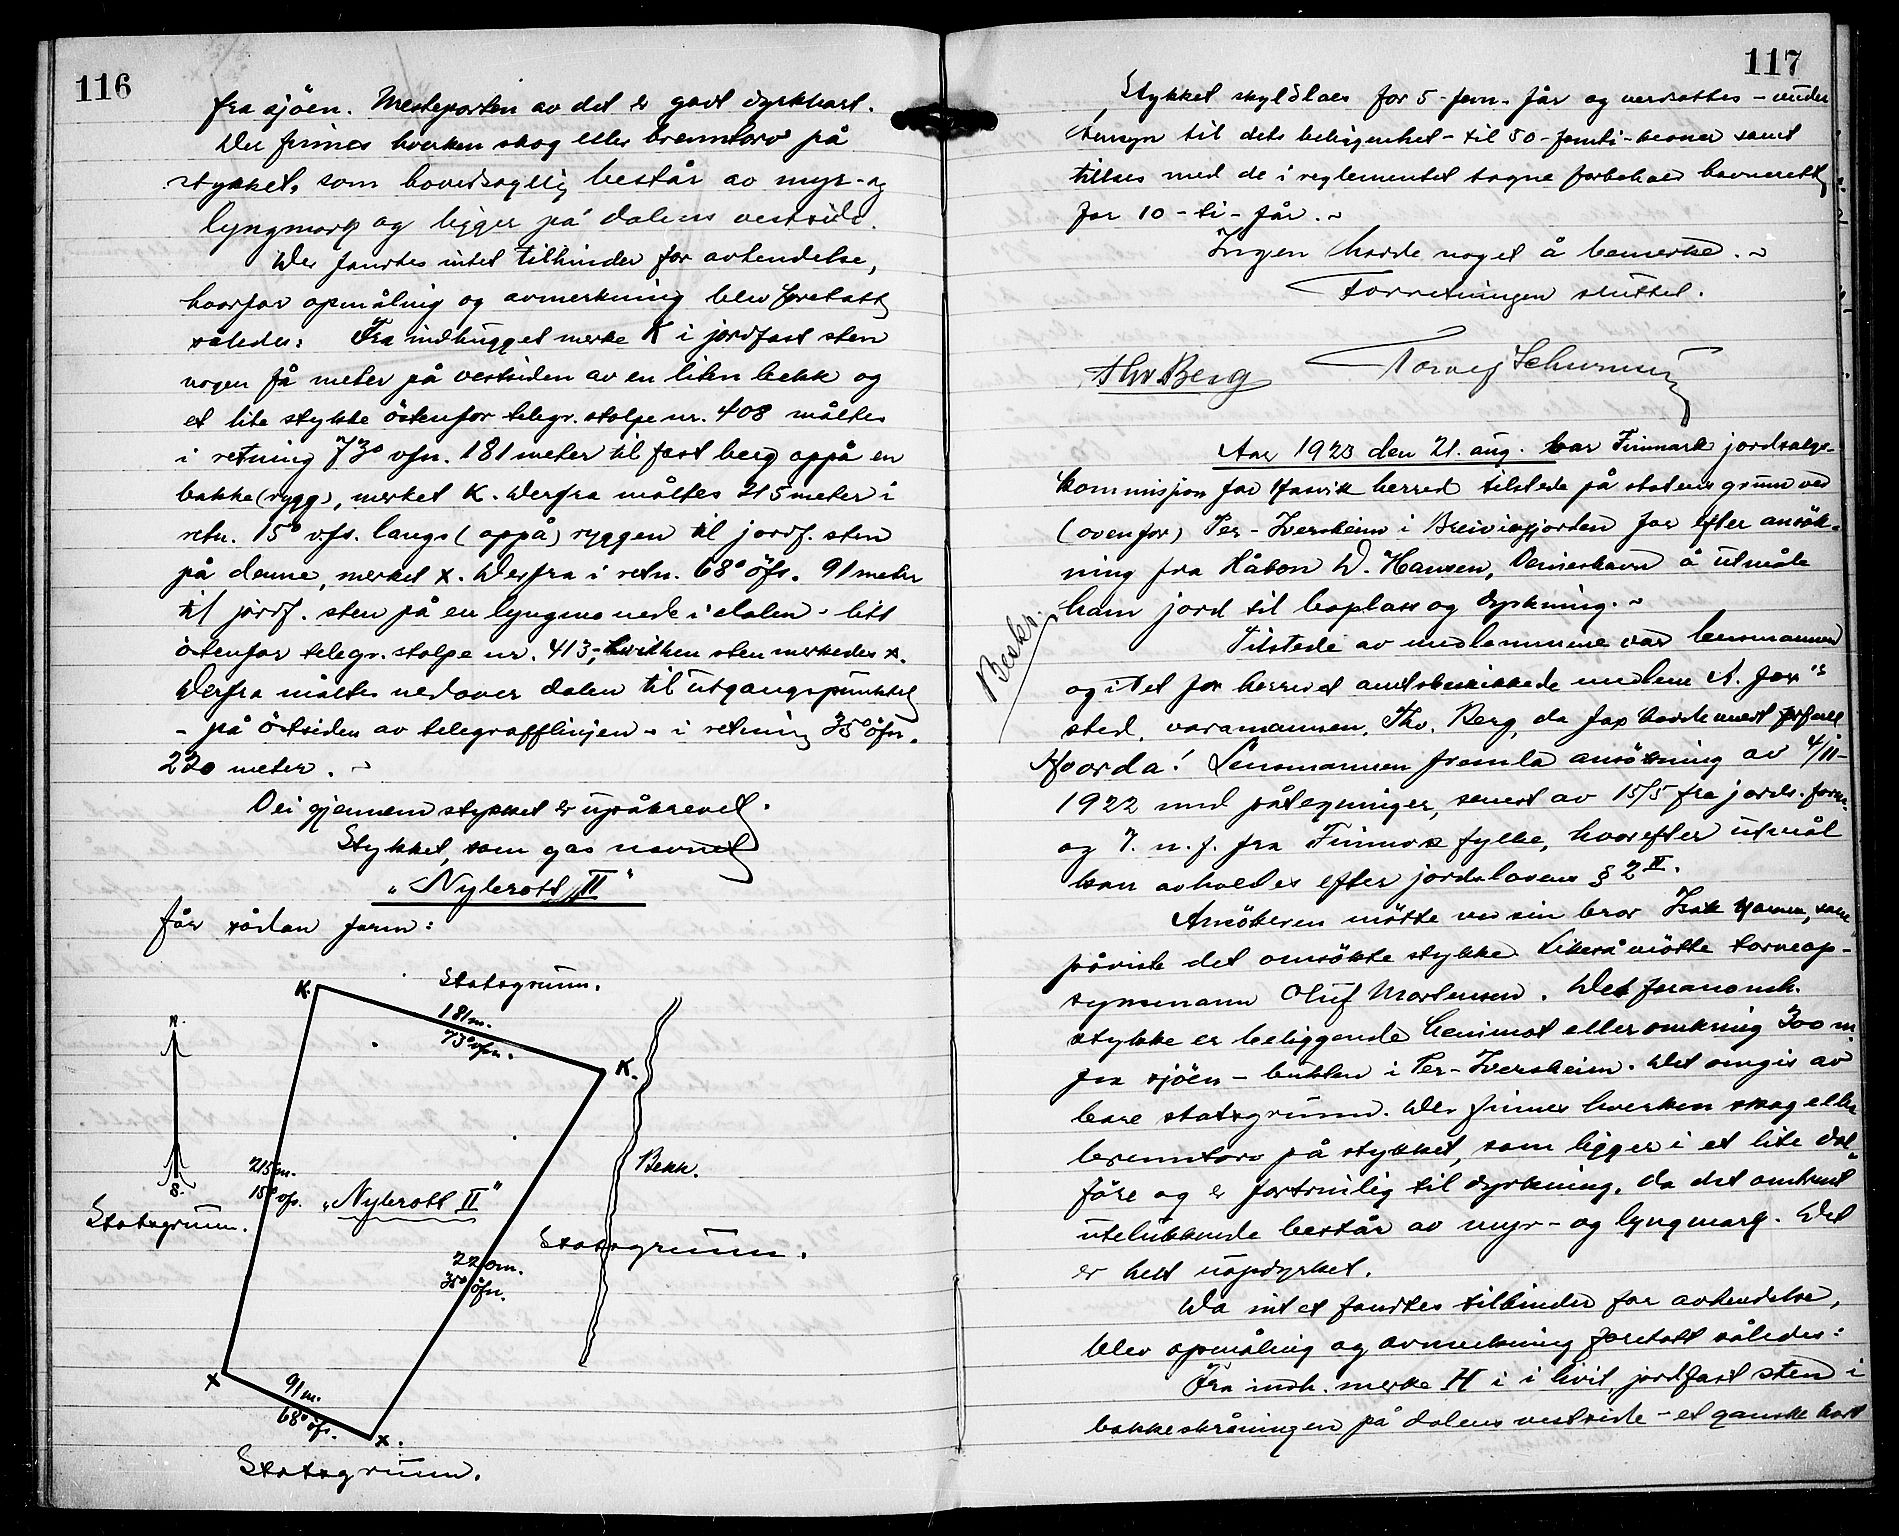 116
fra sjöen. Mesteparten av det er godt dyrkbart.
Der finnes hverken skog eller brenntorv på
stykket, som hovedsaglig består av myr- og
lyngmark og ligger på dalens vestside.
Der fandtes intet tilhinder for avhendelse,
hvorfor opmåling og avmerkning blev foretatt
således: Fra indhugget merke K i jordfast sten
nogen få meter på vestsiden av en liten bekk og
et lite stykke östenfor telegr. stolpe nr. 408 måltes
i retning 73° vfn. 181 meter til fast berg oppå en
bakke (rygg), merket K. Derfra måltes 215 meter i
retn. 15° vfs. langs (oppå) ryggen til jordf. sten
på denne, merket x. Derfra i retn. 68° öfs. 91 meter
til jordf. sten på en lyngmo nede i dalen - litt
östenfor telegr. stolpe nr. 413, hvilken sten merkedes x.
Derfra måltes nedover dalen til utgangspunktet
- på östsiden av telegrafflinjen - i retning 35° öfn.
220 meter. -
Vei gjennem stykket er upåkrevet.
Stykket, som gis navnet
"Nybrott II"
får sådan form:
Statsgrunn.
K.
181 m.
73° vfn.
K.
N.
S.
215 m.
15° vfs.
"Nybrott II"
Bekk.
Statsgrunn.
Statsgrunn.
220 m.
35° öfn.
x
91 m.
68° öfs.
x.
Statsgrunn.
117
Stykket skyldlaes for 5 - fem - før og verdsattes - under
hensyn til dets beliggenhet - til 50 - femti - kroner samt
tillaes med de i reglementet tagne forbehold havnerett
for 10 - ti - får. -
Ingen hadde noget å bemerke. -
Forretningen sluttet.
Thv Berg
Aar 1923 den 21. aug. var Finmark jordsalgs-
kommisjon for Hasvik herred tilstede på statens grunn ved
(ovenfor) Per-Iversheim i Breivikfjorden for efter ansök-
ning fra Håkon D. Hansen, å utmåle
ham jord til boplass og dyrkning. -
Beskr.
Tilstede av medlemmene var lensmannen
og i det for herred et amtsbeskikkede medlem A. Jax-
sted, varamannen, Thv. Berg, da Jax hadde meldt forfall
Hvorda! Lensmannen fremla ansökning av 4/11-
1922 med påtegninger, senest av 15/5 fra jords. form.
og 7. n. f. fra Finmark fylke, hvorefter utmål
kan avholdes efter jordslovens § 2 II.
Ansökeren mötte ved sin bror Isak Hansen, som
påviste det omsökte stykke. Likeså mötte torvop-
synsmann Oluf Mortensen. Det forannevnte
stykke er beliggende henimot eller omkring 300 m.
fra sjöen - bukten i Per-Iversheim. Det omgis av
bare statsgrunn. Der finnes hverken skog eller
brenntorv på stykket, som ligger i et lite dal-
före og er fortrinlig til dyrkning, da det omtrent
utelukkende består av myr- og lyngmark. Det
er helt uopdyrket.
Da intet fandtes tilhinder for avhendelse,
blev opmåling og avmerkning foretatt således:
Fra indh. merke H i i hvit jordfast sten i
bakkeskråningen på dalens vestside - et ganske kort